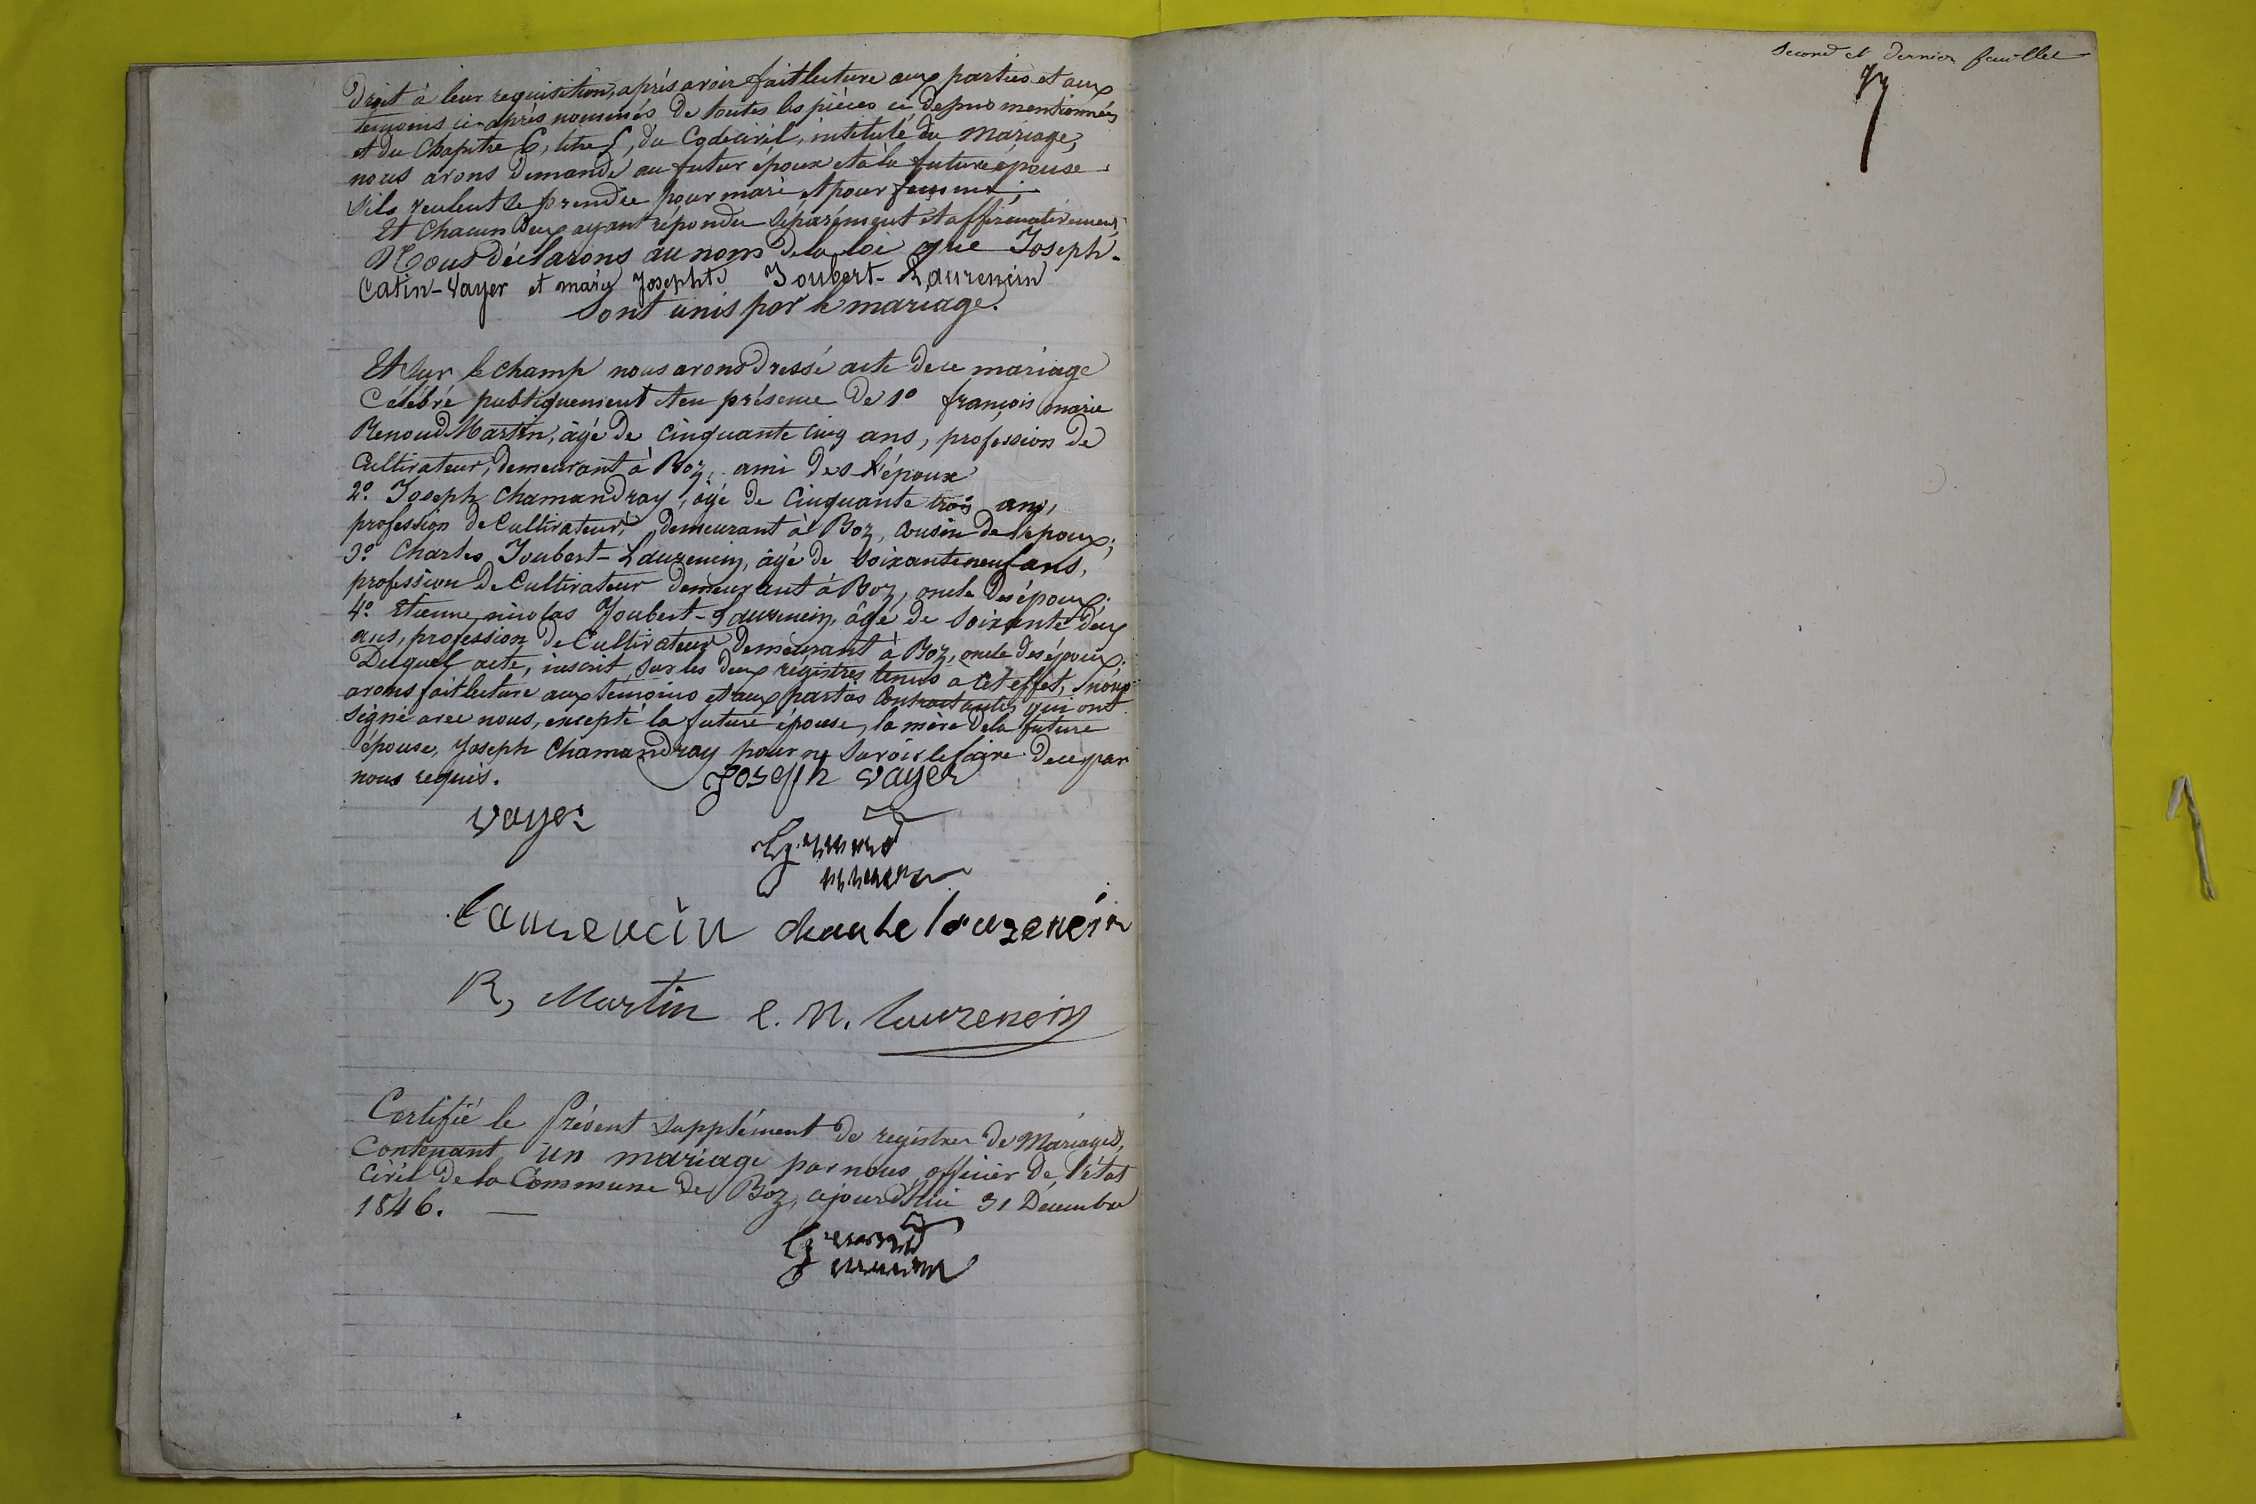 droit à leur requisition, après avoir fait lecture aux parties et aux
temoins ci-après nommés de toutes les pièces ci dessus mentionnées
et du Chapitre 6, titre 5, du Code civil, intitulé du mariage,
nous avons demandé au futur époux et à la future épouse
s'ils veulent se prendre pour mari et pour femme;
Et chacun deux ayant répondu séparément et affirmativement,
Nous déclarons au nom de la loi que Joseph
Catin-Vayer et marie Josephte Joubert-Laurencin
sont unis par le mariage.
Et sur le champ nous avons dressé acte de ce mariage
Célébré publiquement et en présence de 1º françois marie
Renoud Martin, âgé de cinquante cinq ans, profession de
Cultivateur, demeurant à Boz, ami des l'époux
2º. Joseph chamandray, âgé de cinquante trois ans,
profession de Cultivateur, demeurant à Boz, cousin de l'époux;
3º Charles Joubert-Laurencin, âgé de soixante neuf ans,
profession de Cultivateur demeurant à Boz, oncle des époux;
4º. Etienne nicolas Joubert-Laurencin, âgé de soixante deux
ans, profession de Cultivateur demeurant à Boz, oncle des époux;
Duquel acte, inscrit sur les deux régistres tenus à cet effet, nous
avons fait lecture aux témoins et aux parties contractantes, qui ont
signé avec nous, excepté la future épouse, la mère de la future
épouse, Joseph Chamandray pour ne savoir le faire de ce par
nous requis.
Joseph vayer
vayer
laurencin charle laurencin
R, Martin e. N. laurencin
Certifié le présent supplément de registre de Mariages,
Contenant un mariage par nous officier de l'état
civil de la Commune de Boz, cejourd'hui 31 Décembre
1846.
Second et dernier feuillet